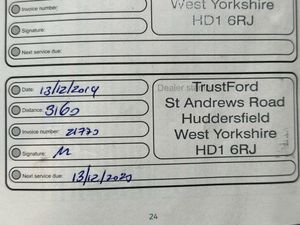 West Yorkshire
Invoice number:
HD1 6RJ
Signature:
Next service due:
Date: 13/12/2019
Dealer sta
TrustFord
Distance: 3160
St Andrews Road
Huddersfield
Invoice number: 21770
West Yorkshire
Signature:
HD1 6RJ
Next service due: 13/12/2020
24